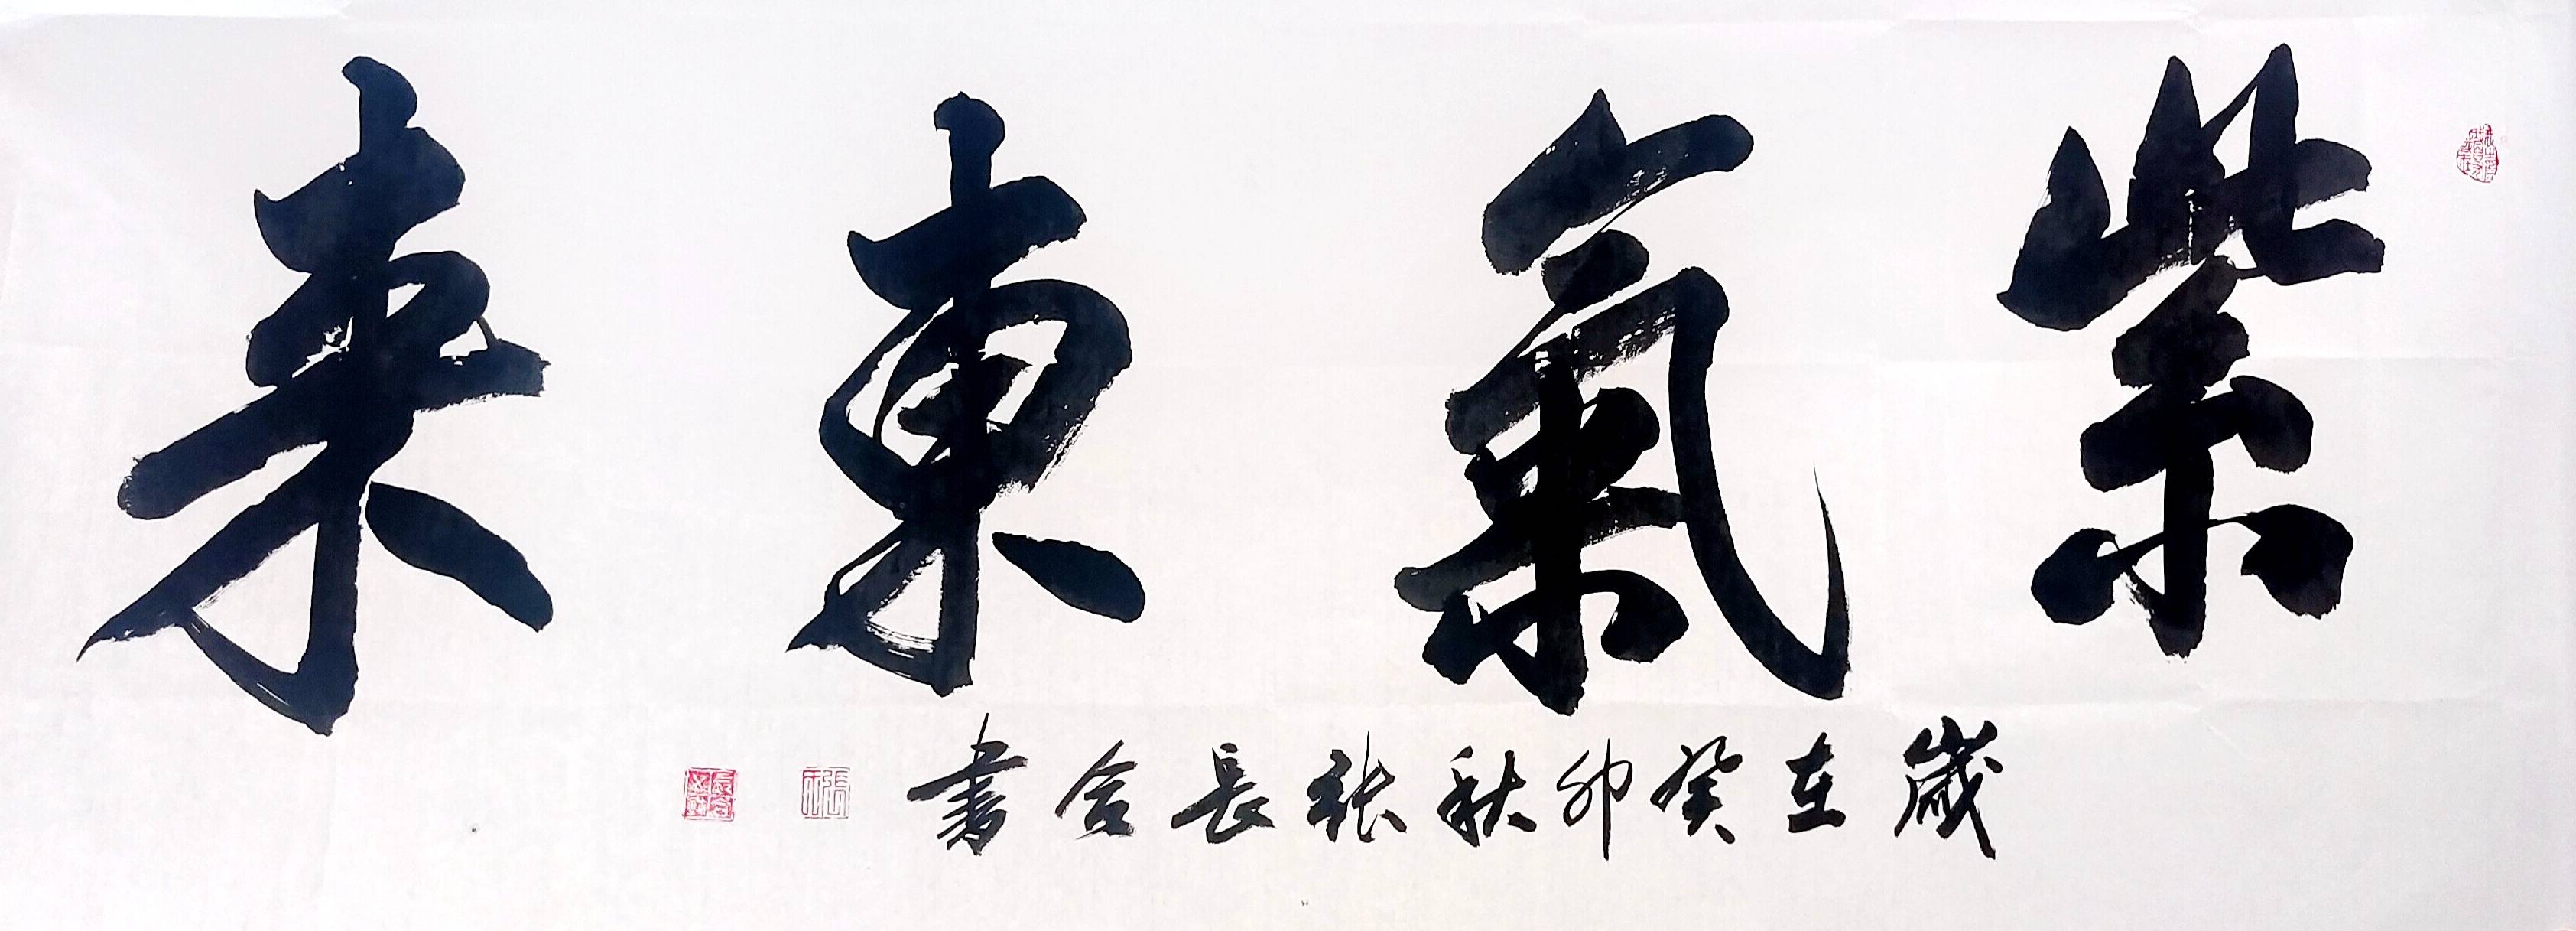 紫氣東来
歲在癸卯秋張長合書